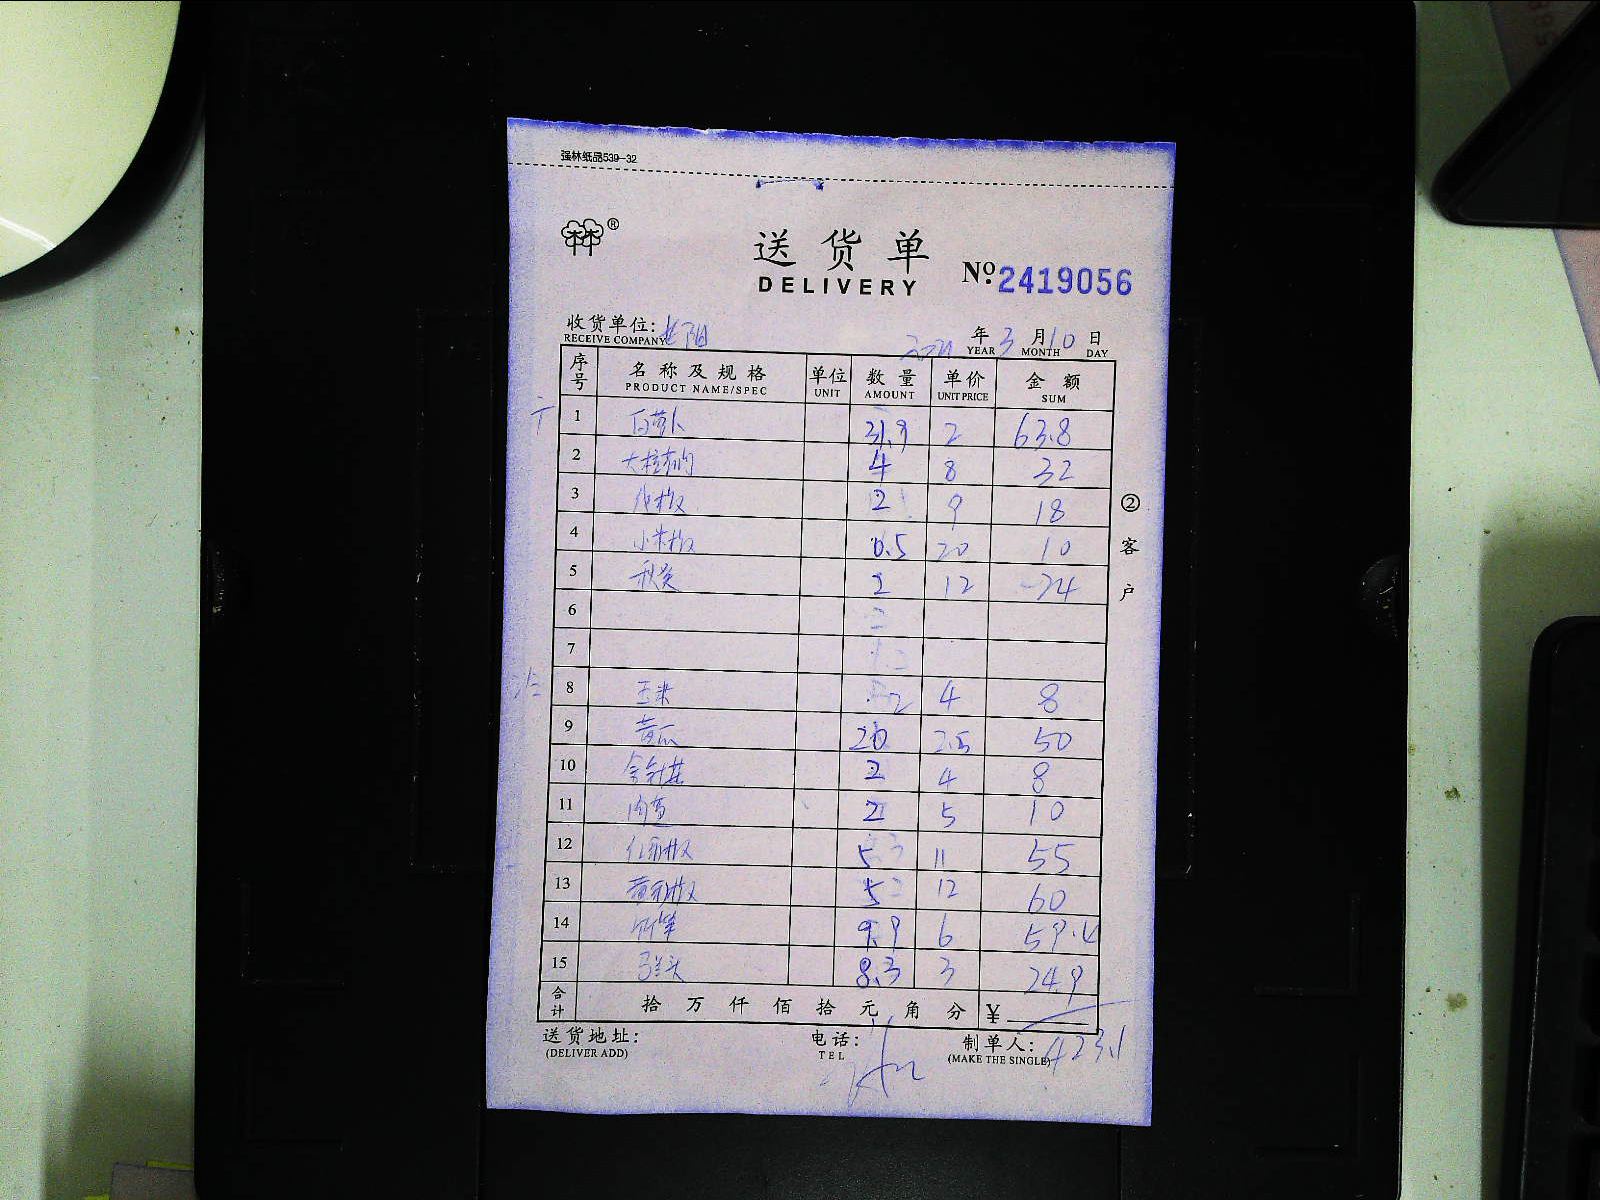 强林纸品539-32
送货单
DELIVERY
№ 2419056
收货单位:
RECEIVE COMPANY
年 3 月 10 日
YEAR MONTH DAY
序号 名称及规格 单位 数量 单价 金额
PRODUCT NAME/SPEC UNIT AMOUNT UNIT PRICE SUM
1 白萝卜 31.9 2 63.8
2 4 8 32
3 2 9 18
4 小米椒 0.5 20 10
5 秋葵 2 12 24
6
7
8 玉米 2 4 8
9 黄瓜 20 2.5 50
10 金针菇 2 4 8
11 2 5 10
12 5 11 55
13 5 12 60
14 9.9 6 59.4
15 8.3 3 24.9
合计 拾 万 仟 佰 拾 元 角 分 ¥
423.1
送货地址: 电话: 制单人:
(DELIVER ADD) TEL (MAKE THE SINGLE)
②客户